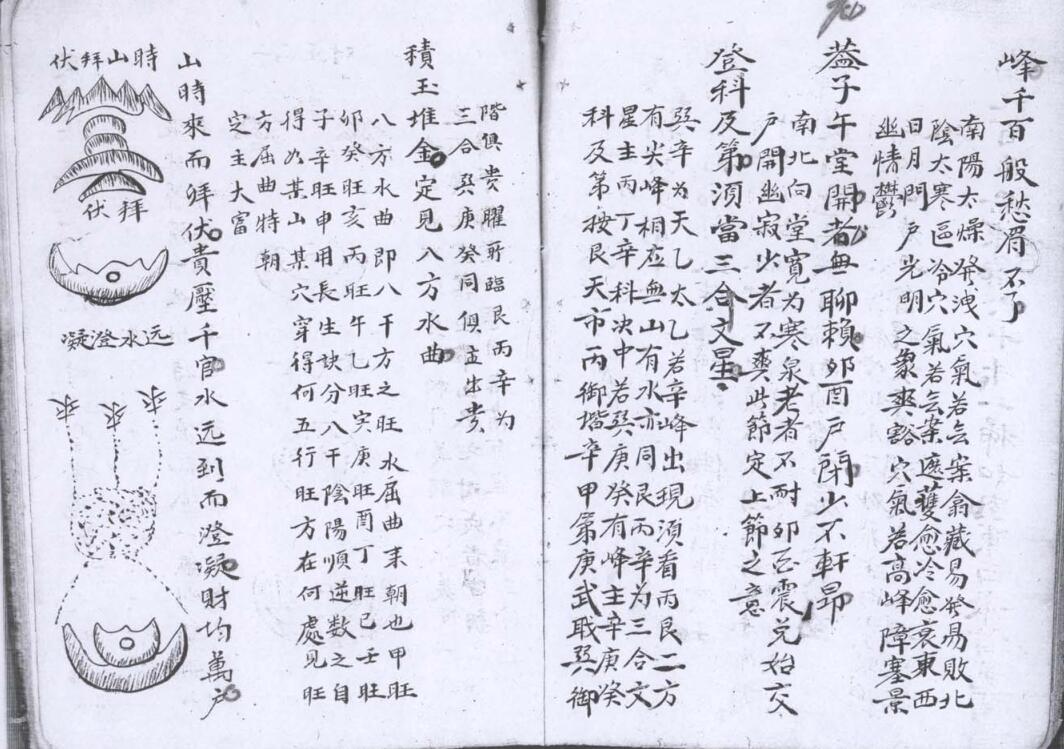 峰千百般愁眉不了
南陽太燥發洩穴氣若云案翕藏易發易敗北
陰太寒區冷穴氣若云案遮護愈冷愈哀東西
日月門戶光明之象爽豁穴氣若高峰障塞景
幽情鬱
葢子午堂開者無聊賴夘酉戶閉少不軒昂
南北向堂寬为寒泉老者不耐夘酉震兑始交
戶開幽寂少者不爽此節定上節之意
登科及第須當三合文星
巽辛为天乙太乙若辛峰出現須看丙艮二方
有尖峰相应無山有水亦同艮丙辛为三合文
星主丙丁辛科决中若巽庚癸有峰主辛庚癸
科及第按艮天市丙御堦辛甲第庚武职巽御
階俱贵曜所臨艮丙辛为
三合巽庚癸同俱主出贵
積玉堆金定見八方水曲
八方水曲即八干方之旺水屈曲来朝也甲旺
夘癸旺亥丙旺午乙旺寅庚旺酉丁旺巳壬旺
子辛旺申用長生訣分八干陰陽順逆数之自
得如某山某穴穿得何五行旺方在何處見旺
方屈曲特朝
定主大富
山時來而拜伏貴壓千官水远到而澄凝財均萬戶
時山拜伏
拜伏
远水澄凝
水
水
水